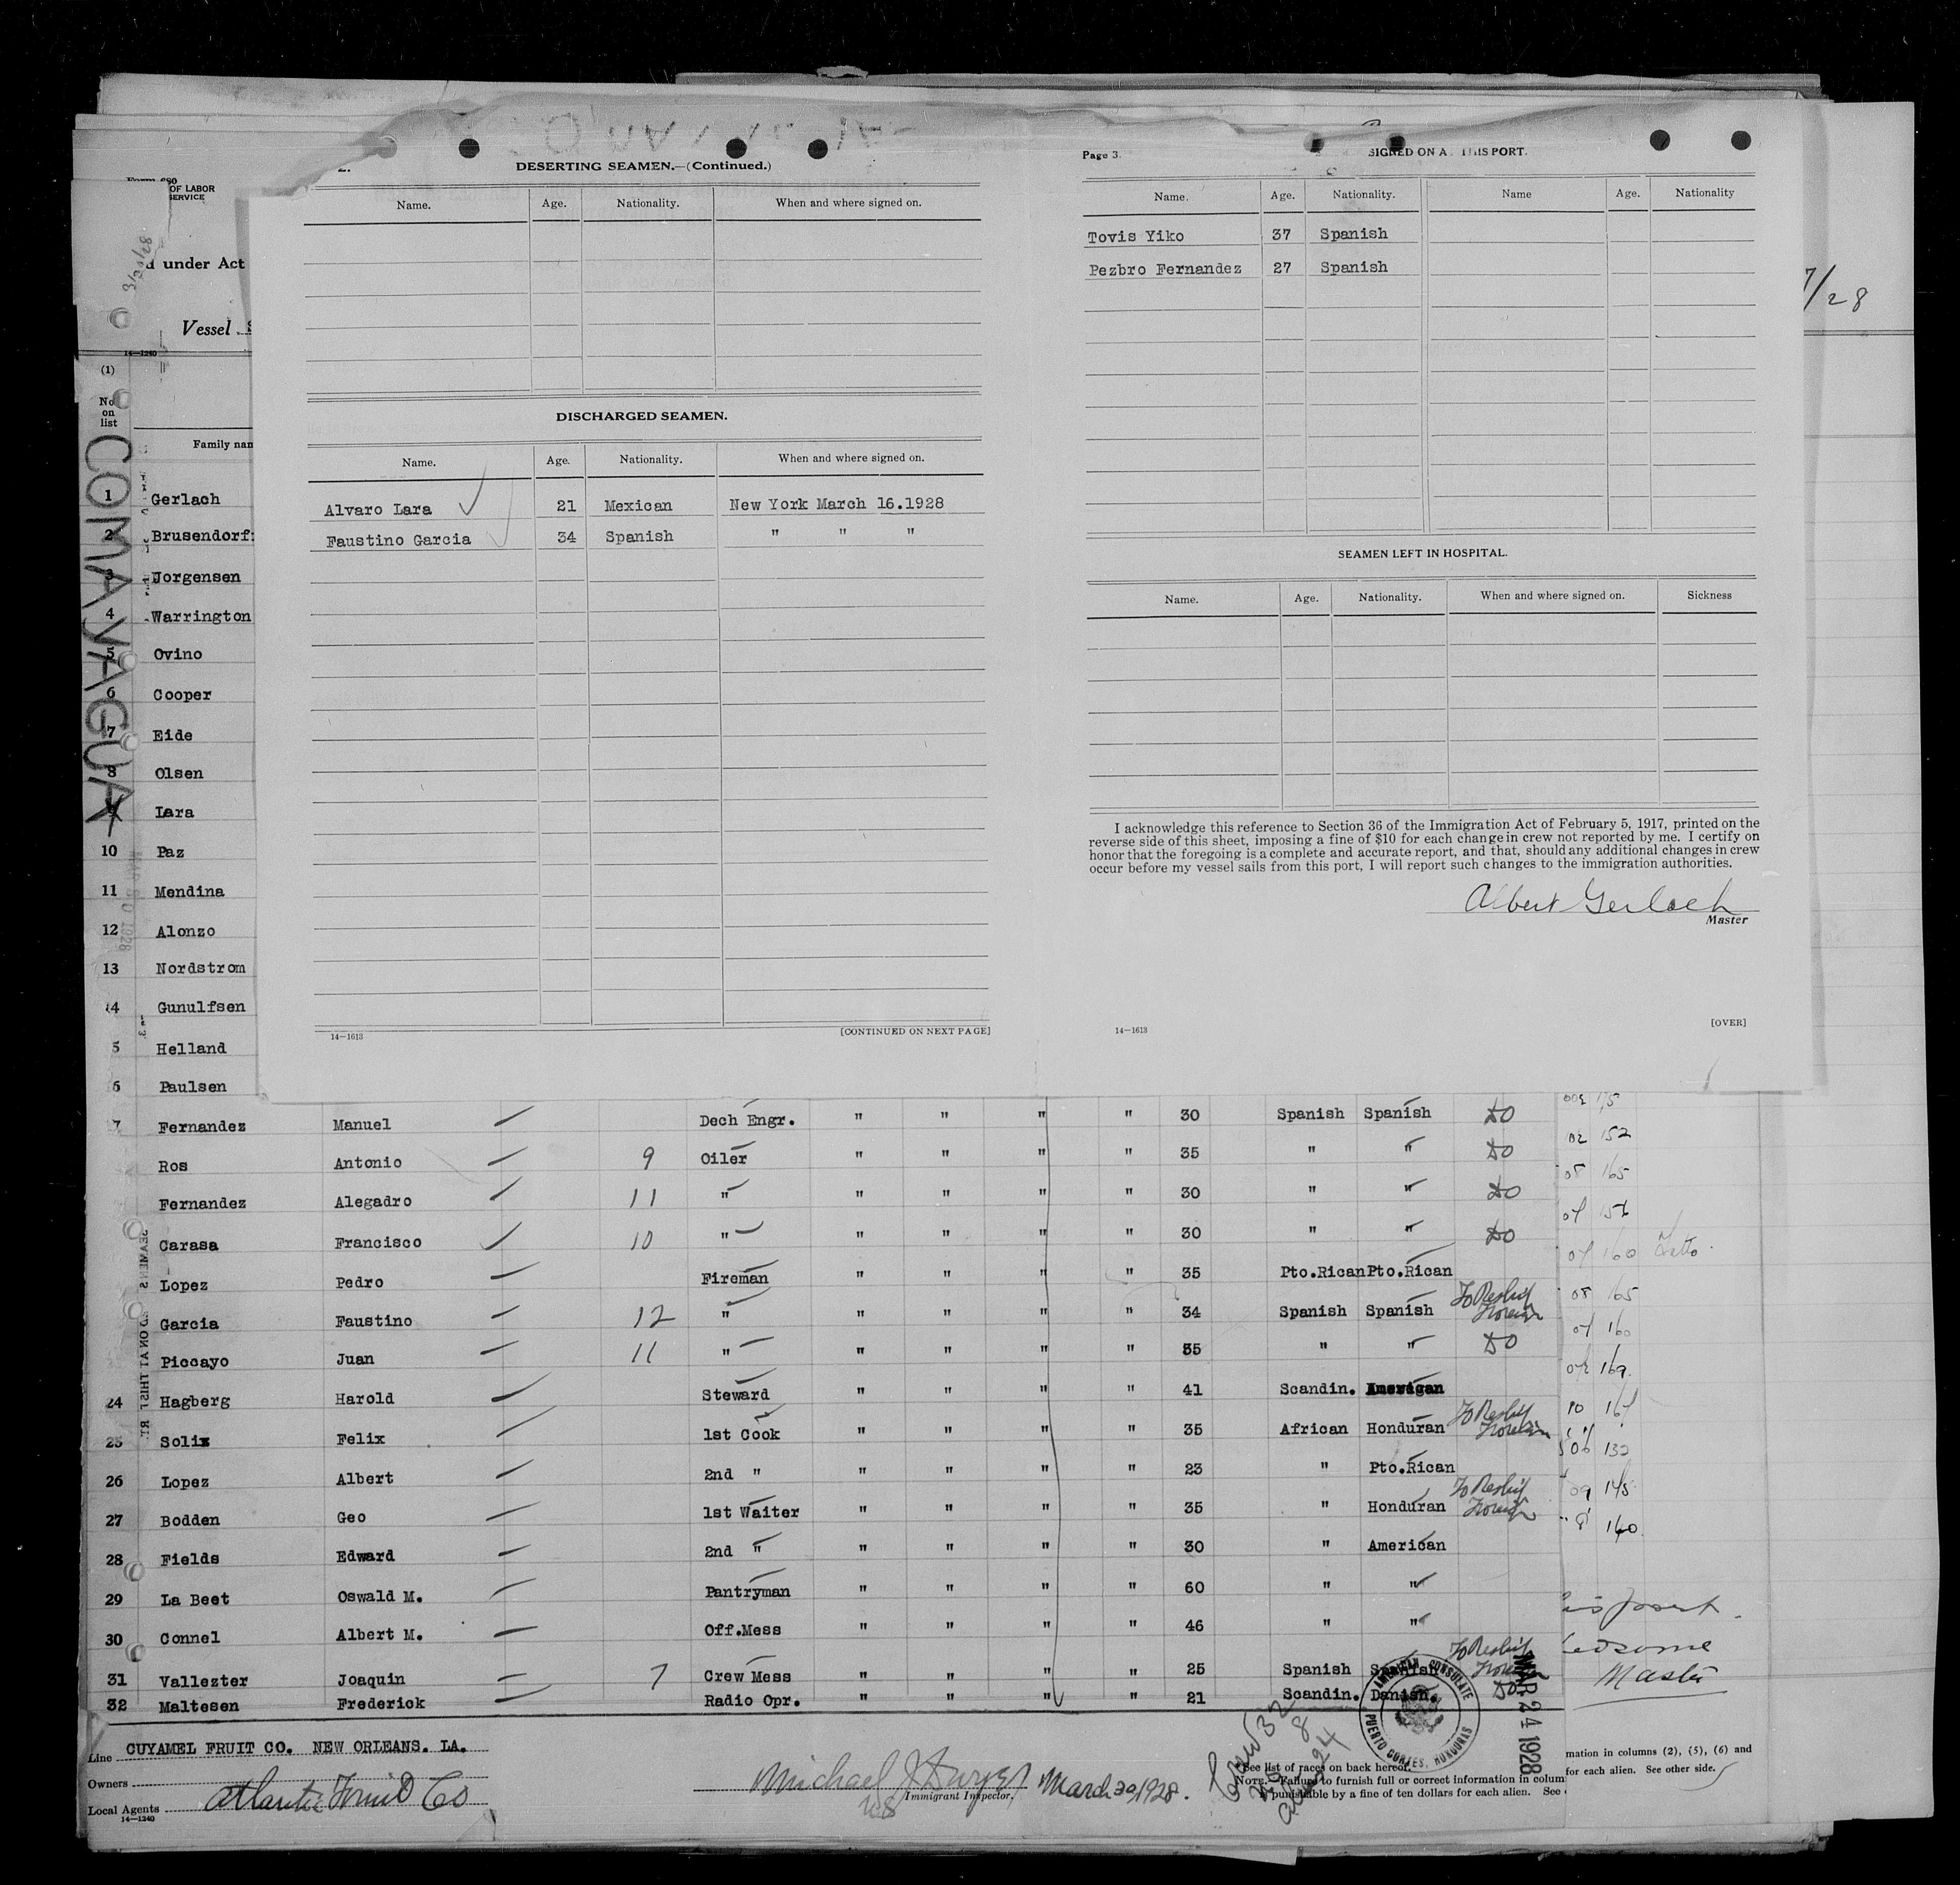 DESERTING SEAMEN.—(Continued.)
Name. Age. Nationality. When and where signed on.
DISCHARGED SEAMEN.
Name. Age. Nationality. When and where signed on.
Alvaro Lara 21 Mexican New York March 16.1928
Faustino Garcia 34 Spanish " " "
14—1613 [CONTINUED ON NEXT PAGE]
Page 3.
SIGNED ON A THIS PORT.
Name. Age. Nationality. Name Age. Nationality
Tovis Yiko 37 Spanish
Pezbro Fernandez 27 Spanish
SEAMEN LEFT IN HOSPITAL.
Name. Age. Nationality. When and where signed on. Sickness
I acknowledge this reference to Section 36 of the Immigration Act of February 5, 1917, printed on the
reverse side of this sheet, imposing a fine of $10 for each change in crew not reported by me. I certify on
honor that the foregoing is a complete and accurate report, and that, should any additional changes in crew
occur before my vessel sails from this port, I will report such changes to the immigration authorities.
Albert Gerlach
Master
14—1613 [OVER]
7/28
OF LABOR
SERVICE
under Act
Vessel
14—1240
(1)
No.
on
list
Family nam
COMAYAGUA
1 Gerlach
2 Brusendorf
3 Jorgensen
4 Warrington
5 Ovino
6 Cooper
7 Eide
8 Olsen
9 Lara
10 Paz
11 Mendina
12 Alonzo
13 Nordstrom
14 Gunulfsen
5 Helland
6 Paulsen
7 Fernandez Manuel Dech Engr. " " " " 30 Spanish Spanish DO
Ros Antonio 9 Oiler " " " " 35 " " DO
Fernandez Alegadro 11 " " " " " 30 " " DO
Carasa Francisco 10 " " " " " 30 " " DO
Lopez Pedro Fireman " " " " 35 Pto.Rican Pto.Rican
Garcia Faustino 12 " " " " " 34 Spanish Spanish To Reship Foreign
Piccayo Juan 11 " " " " " 35 " " DO
24 Hagberg Harold Steward " " " " 41 Scandin. American
25 Solis Felix 1st Cook " " " " 35 African Honduran To Reship Foreign
26 Lopez Albert 2nd " " " " " 23 " Pto.Rican
27 Bodden Geo 1st Waiter " " " " 35 " Honduran To Reship Foreign
28 Fields Edward 2nd " " " " " 30 " American
29 La Beet Oswald M. Pantryman " " " " 60 " "
30 Connel Albert M. Off.Mess " " " " 46 " "
31 Vallezter Joaquin 7 Crew Mess " " " " 25 Spanish Spanish To Reship
32 Maltesen Frederick Radio Opr. " " " " 21 Scandin. Danish. DO
AMERICAN CONSULATE
PUERTO CORTES, HONDURAS
MAR 24 1928
Master
Line CUYAMEL FRUIT CO. NEW ORLEANS. LA.
Owners
Local Agents Atlantic Fruit Co
14—1240
Michael J Dwyer March 20, 1928.
Immigrant Inspector.
Crew 32
8
24
See list of races on back hereof.
NOTE.—Failure to furnish full or correct information in colum
is punishable by a fine of ten dollars for each alien. See
mation in columns (2), (5), (6) and
for each alien. See other side.